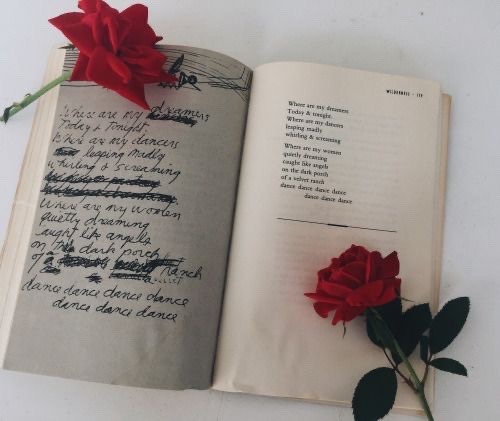 Where are my dreamers
Today & Tonight
Where are my dancers
leaping madly
whirling & screaming
where are my women
quietly dreaming
caught like angels
on the dark porch
of a velvet Ranch
dance dance dance dance
dance dance dance
WILDERNESS · 119
Where are my dreamers
Today & tonight.
Where are my dancers
leaping madly
whirling & screaming
Where are my women
quietly dreaming
caught like angels
on the dark porch
of a velvet ranch
dance dance dance dance
dance dance dance